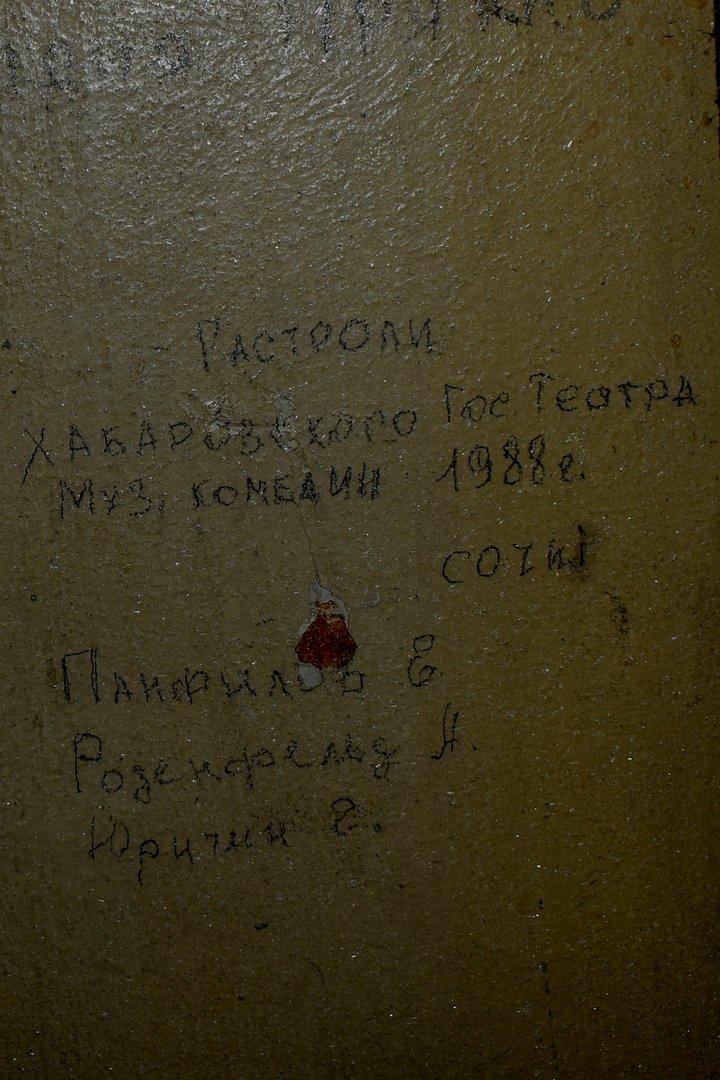 Растроли
Хабаровского Гос Театра
Муз. комедии 1988г.
Сочи
Панфилов Е
Розенфельд А.
Юричин Е.